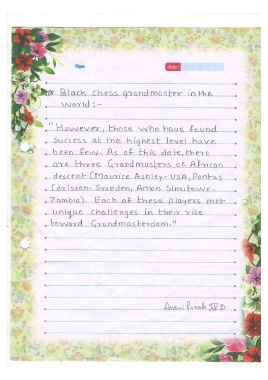 Topic
Date
Black chess grandmaster in the
world :-
"However, those who have found
success at the highest level have
been few. As of this date, there
are three Grandmasters of African
descent (Maurice Ashley-USA, Pontus
Carlsson-Sweden, Amon Simutowe-
Zambia). Each of these players met
unique challenges in their rise
toward Grandmasterdom."
Parab IV D